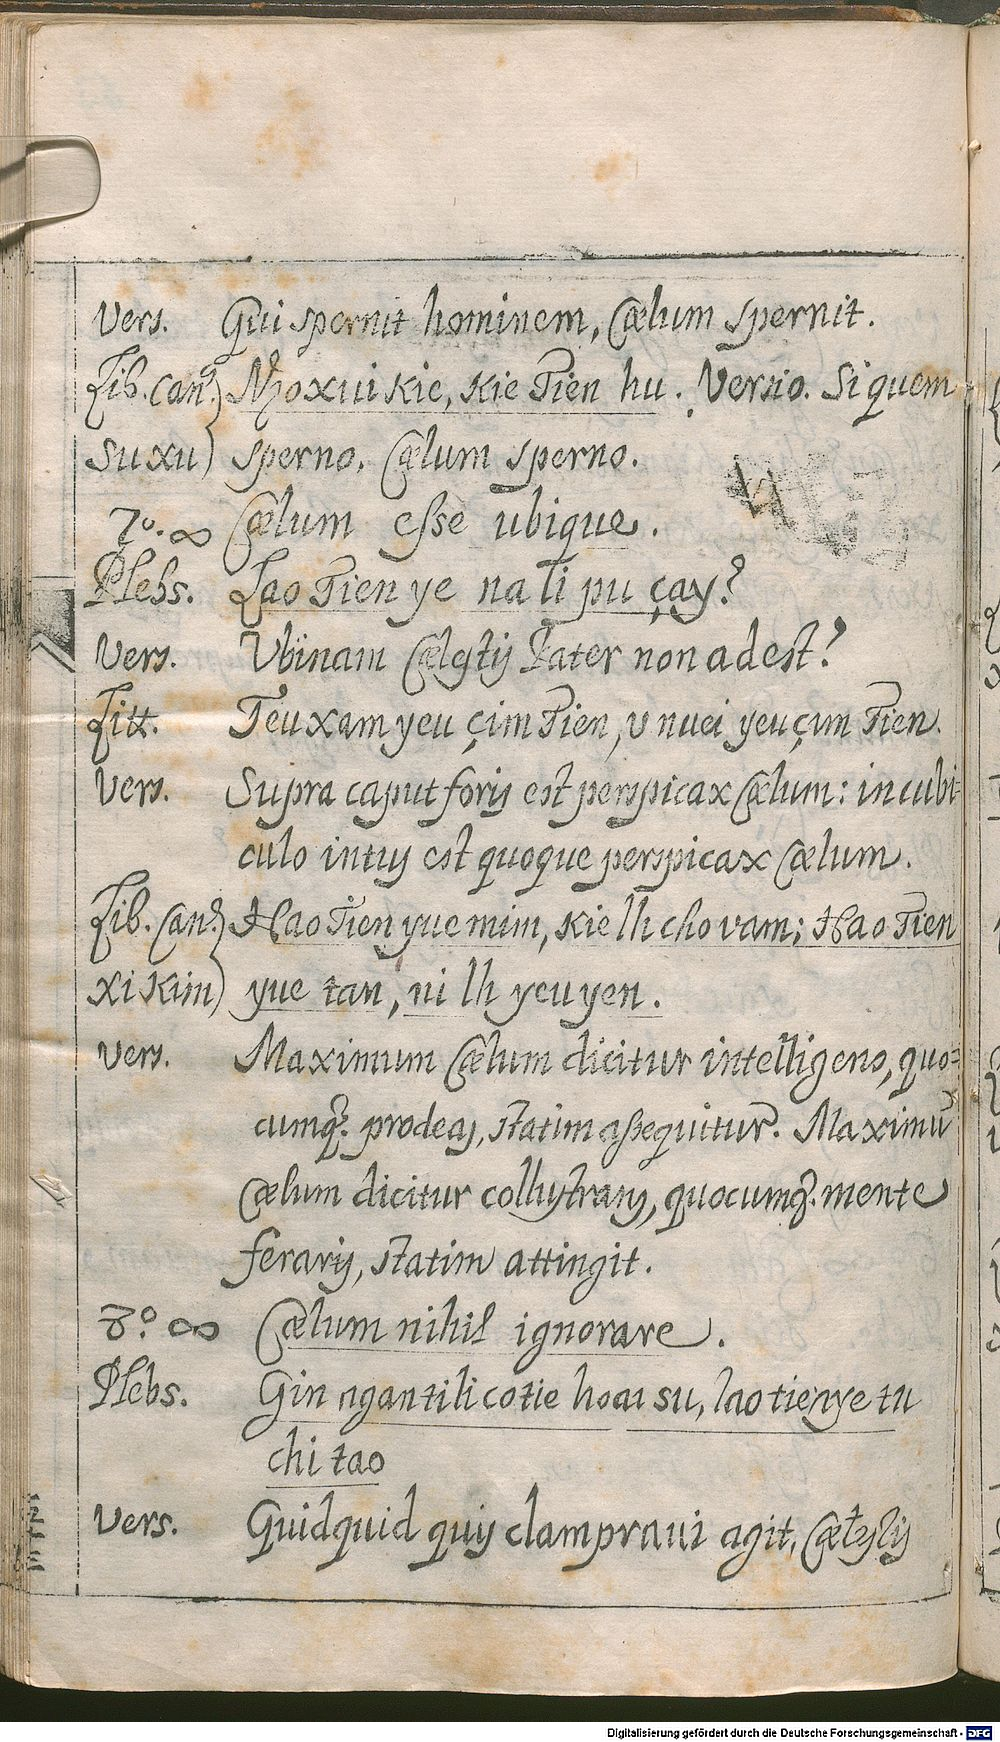 Vers. Qui spernit hominem, Cælum spernit.
Lib. Can. Ngo xui Kie, Kie Tien hu. Versio. Si quem
Su xu) sperno, Cælum sperno.
7º. ∞ Cælum esse ubique.
Plebs. Lao Tien ye na li pu çay?
Vers. Ubinam Cælestis Pater non adest?
Litt. Teu xam yeu çim Tien, v nuei yeu çim Tien.
Vers. Supra caput foris est perspicax Cælum: in cubi-
culo intus est quoque perspicax Cælum.
Lib. Can. Hao Tien yue mim, Kie lh cho vam; Hao Tien
Xi Kim) yue tan, ni lh yeu yen.
Vers. Maximum Cælum dicitur intelligens, quo=
cumq3. prodeas, statim assequitur. Maximū
Cælum dicitur collustrans, quocumq3. mente
feraris, statim attingit.
8º. ∞ Cælum nihil ignorare.
Plebs. Gin ngan ti li co tie hoai su, lao tien ye tu
chi tao
Vers. Quidquid quis clam praui agit, Cælestis